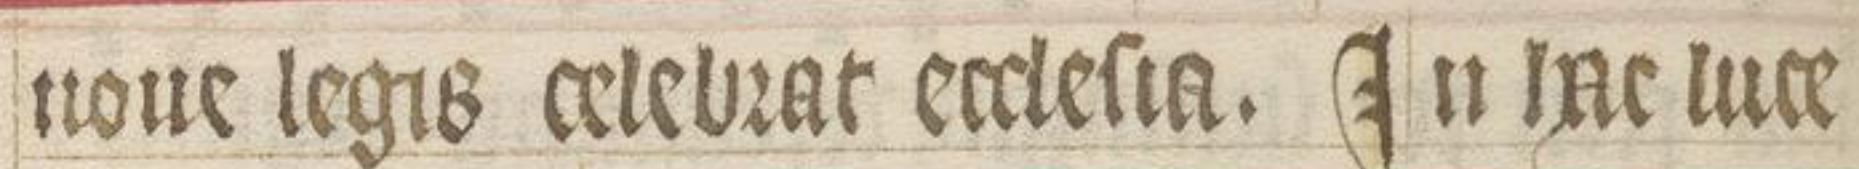 noue legis celebrat ecclesia. In hac luce